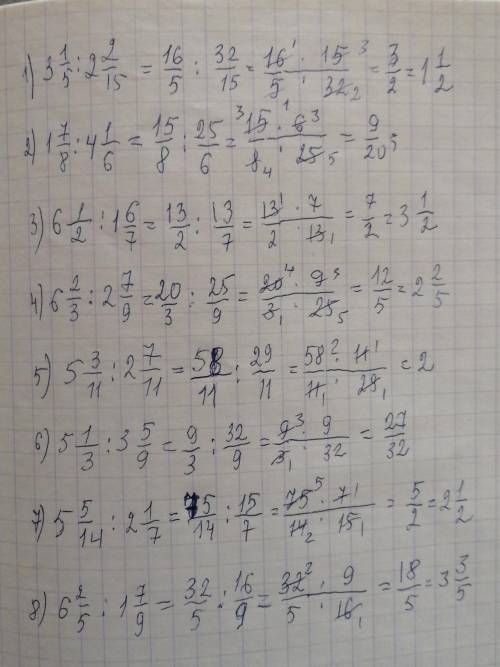 1) 3 1/5 : 2 2/15 = 16/5 : 32/15 = 16¹ · 15³ / 5 · 32₂ = 3/2 = 1 1/2
2) 1 7/8 : 4 1/6 = 15/8 : 25/6 = ³15¹ · 6³ / 8₄ · 25₅ = 9/20
3) 6 1/2 : 1 6/7 = 13/2 : 13/7 = 13¹ · 7 / 2 · 13₁ = 7/2 = 3 1/2
4) 6 2/3 : 2 7/9 = 20/3 : 25/9 = 20⁴ · 9³ / 3₁ · 25₅ = 12/5 = 2 2/5
5) 5 3/11 : 2 7/11 = 58/11 : 29/11 = 58² · 11¹ / 11₁ · 29₁ = 2
6) 5 1/3 : 3 5/9 = 9/3 : 32/9 = 9³ · 9 / 3₁ · 32 = 27/32
7) 5 5/14 : 2 1/7 = 75/14 : 15/7 = 75⁵ · 7¹ / 14₂ · 15₁ = 5/2 = 2 1/2
8) 6 2/5 : 1 7/9 = 32/5 : 16/9 = 32² · 9 / 5 · 16₁ = 18/5 = 3 3/5